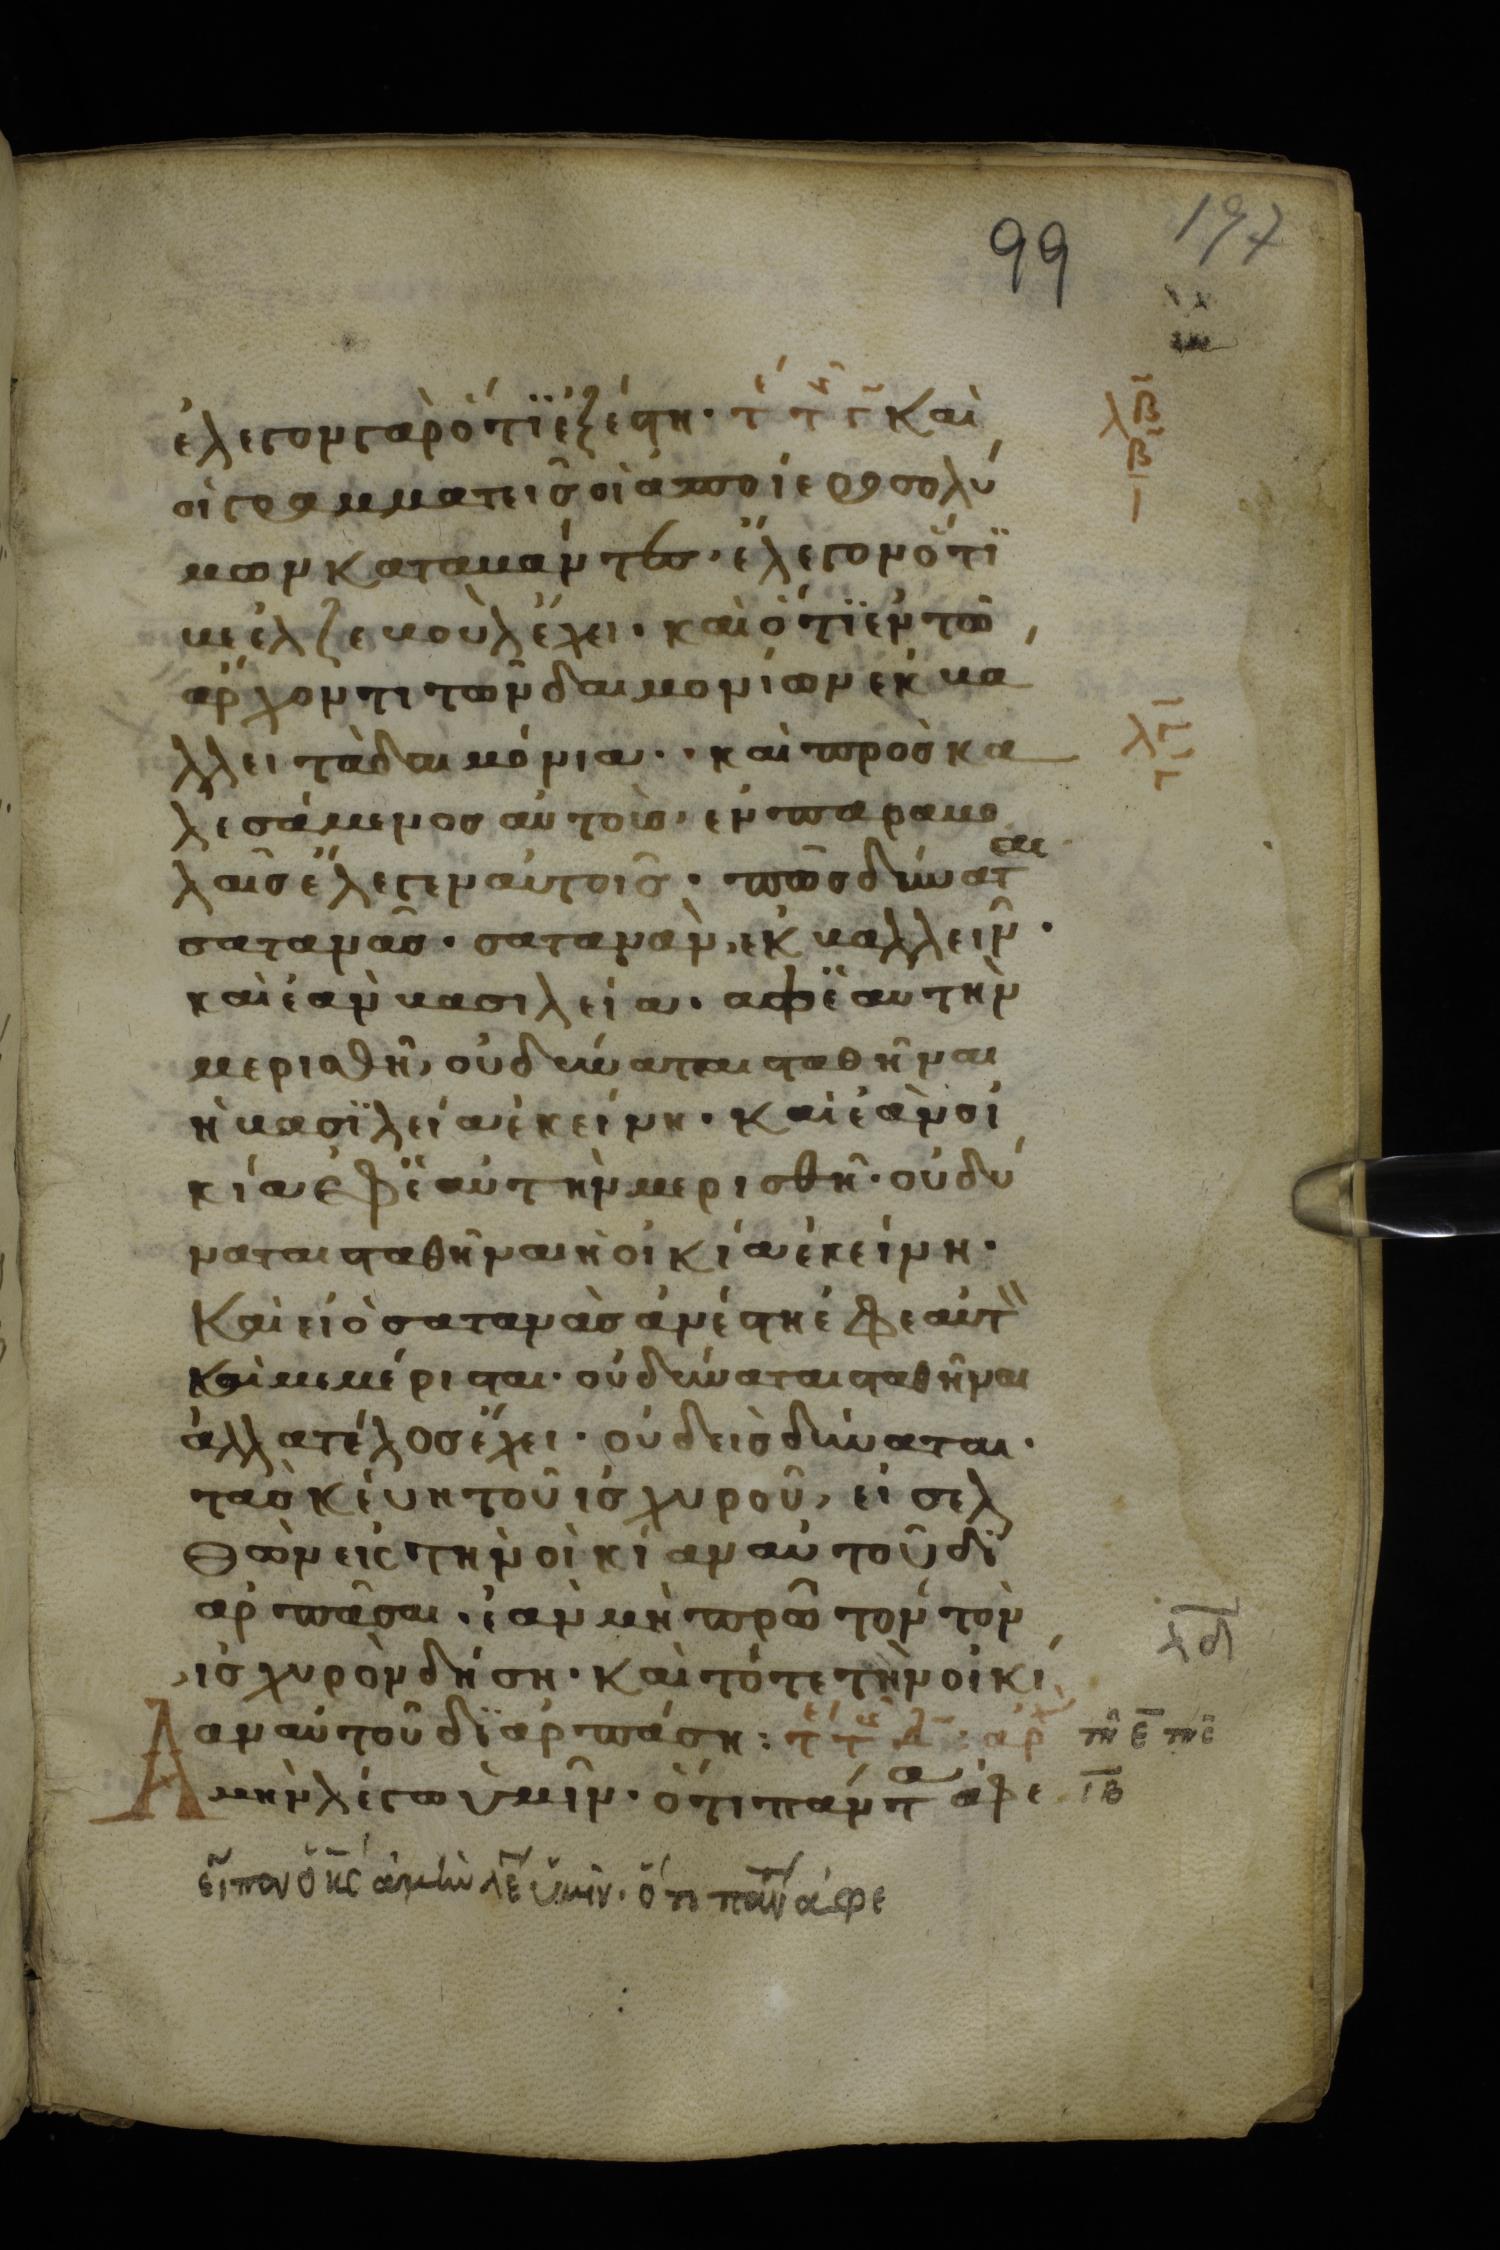 99 197
ἔλεγον γὰρ ὅτι ἐξέστη· τε τη γ Και
οἱ γραμματεῖς οἱ ἀπο ἱεροσολύ
μων καταβάντες· ἔλεγον ὅτϊ
βεελζεβουλ ἔχει· και ὅτϊ ἐν τῶ
ἄρχοντι τῶν δαιμονίων ἐκβα
λλει τὰ δαιμόνια· και προσκα
λεσάμενος αὐτοὺς, ἐν παραβο
λαῖς ἔλεγεν αὐτοῖς· πῶς δύναται
σατανᾶς· σατανὰν, ἐκβαλλεῖν·
και ἐὰν βασιλεία· αφ ἑαυτὴν
μερισθῆ, οὐ δύναται σταθῆναι
ἡ βασϊλεία ἐκείνη· Και ἐὰν οἰ
κία ἐφ ἑαυτὴν μερισθῆ· οὐ δύ
ναται σταθῆναι ἡ οἰκία ἐκείνη·
Και εἰ ὁ σατανὰς ἀνέστη ἐφ εαυτ
και μεμέρισται· οὐ δύναται σταθῆναι
ἀλλα τέλος ἔχει· οὐδεὶς δύναται·
τα σκέυη τοῦ ἰσχυροῦ, εἰσελ
θὼν εἰς τὴν οἰκίαν αὐτοῦ δϊ
αρπᾶσαι· ἐὰν μὴ πρῶτον τὸν
ἰσχυρὸν δήση· Και τότε τὴν οἰκί
αν αὐτοῦ δϊαρπάση: τε τη αρχ
Αμὴν λέγω ὑμῖν· ὅτι πάντα ἀφε
εἶπεν ὁ κς ἀμὴν λε ὑμῖν· ὅτι παν ἀφε
λβ
β
ι
λγ
λδ
ιβ